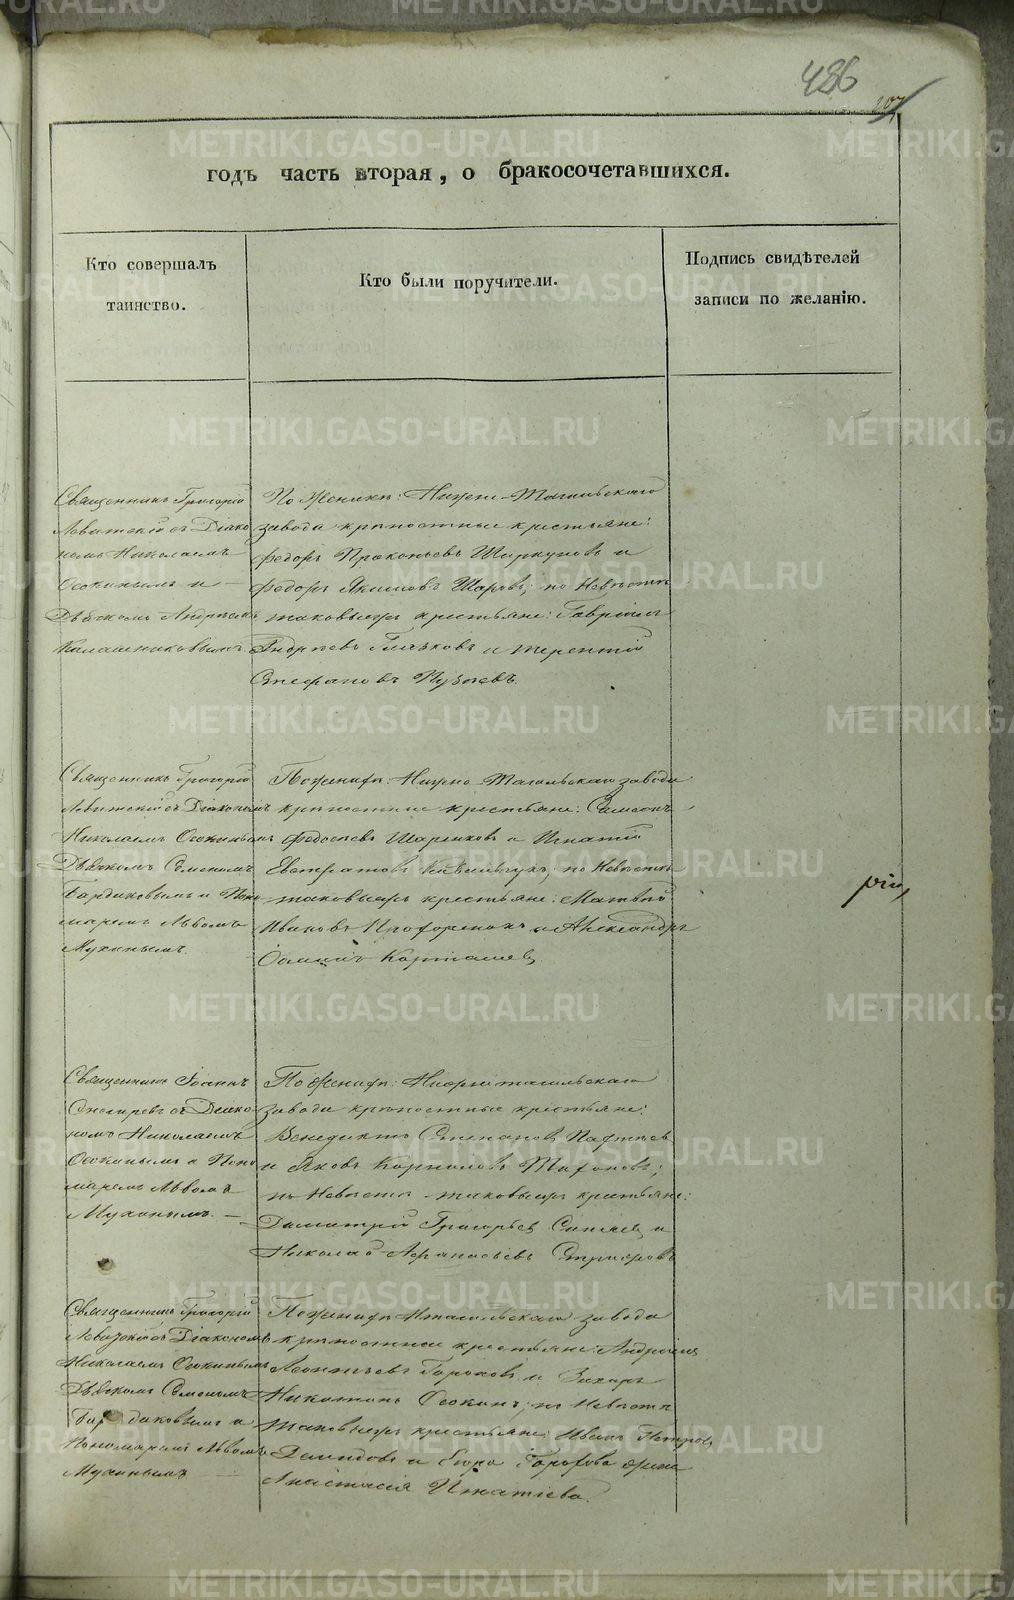 486
207
годъ часть вторая, о бракосочетавшихся.
Кто совершалъ
таинство.
Кто были поручители.
Подпись свидѣтелей
записи по желанію.
Священникъ Григорій
Левитскій съ Діако
номъ Николаемъ
Осокинымъ и
Дьячкомъ Андреемъ
Калашниковымъ
По Женихѣ: Нижне-Тагильскаго
завода крѣпостные крестьяне:
Федоръ Прокопьевъ и
Федоръ Якимовъ Шаровъ; по Невѣстѣ
таковыежъ крестьяне: Гавріилъ
Андреевъ Глазковъ и Терентій
Стефановъ Пузаевъ.
Священникъ Григорій
Левитскій съ Діакономъ
Николаемъ Осокинымъ
Дьячкомъ Семеномъ
Бардаковымъ и Поно
маремъ Львомъ
Мухинымъ.
По женихѣ: Нижне Тагильскаго завода
крѣпостные крестьяне: Самсонъ
Федосѣевъ и Игнатій
Евстратовъ по Невѣстѣ
таковыежъ крестьяне: Матвѣй
Ивановъ и Александръ
Карташевъ
Священникъ Іоаннъ
съ Діако
номъ Николаемъ
Осокинымъ и Поно
маремъ Львомъ
Мухинымъ.
По Женихѣ: Нижнетагильскаго
завода крѣпостные крестьяне:
Венедиктъ Степановъ
и Яковъ Корниловъ
по Невѣстѣ таковыежъ крестьяне:
Димитрій Григорьевъ и
Николай Афанасьевъ
Священникъ Григорій
Левитскій съ Діакономъ
Николаемъ Осокинымъ
Дьячкомъ Семеномъ
Бардаковымъ и
Пономаремъ Львомъ
Мухинымъ
По женихѣ Нтагильскаго завода
крѣпостные крестьяне: Андрей
Леонтьевъ Гороховъ и Захаръ
Никитинъ Осокинъ; по Невѣстѣ
таковыежъ крестьяне: Иванъ Петровъ
Давыдовъ и жена
Анастасія Игнатіева.
METRIKI.GASO-URAL.RU